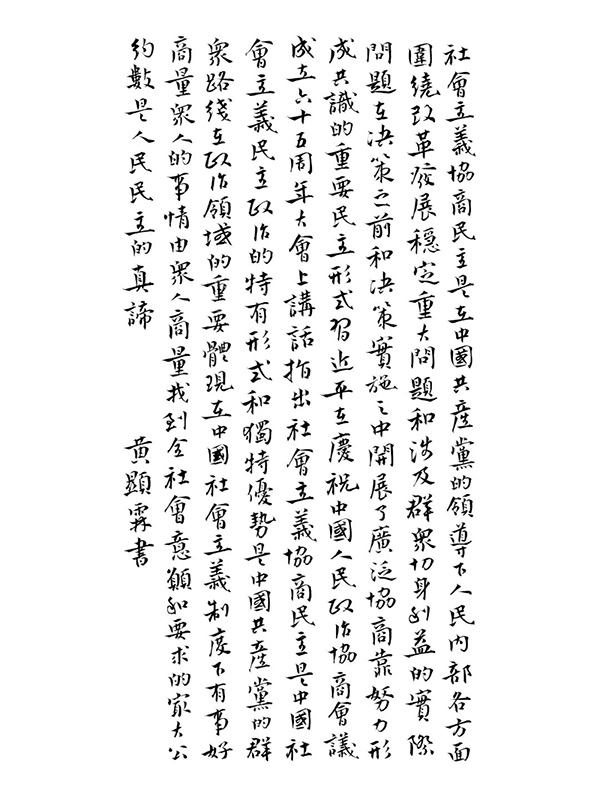 社會主義協商民主是在中國共産黨的領導下人民内部各方面
圍繞改革發展穩定重大問題和涉及群衆切身利益的實際
問題在决策之前和决策實施之中開展了廣泛協商靠努力形
成共識的重要民主形式習近平在慶祝中國人民政治協商會議
成立六十五周年大會上講話指出社會主義協商民主是中國社
會主義民主政治的特有形式和獨特優勢是中國共産黨的群
衆路綫在政治領域的重要體現在中國社會主義制度下有事好
商量衆人的事情由衆人商量找到全社會意願和要求的最大公
約數是人民民主的真諦
黄顯霖書